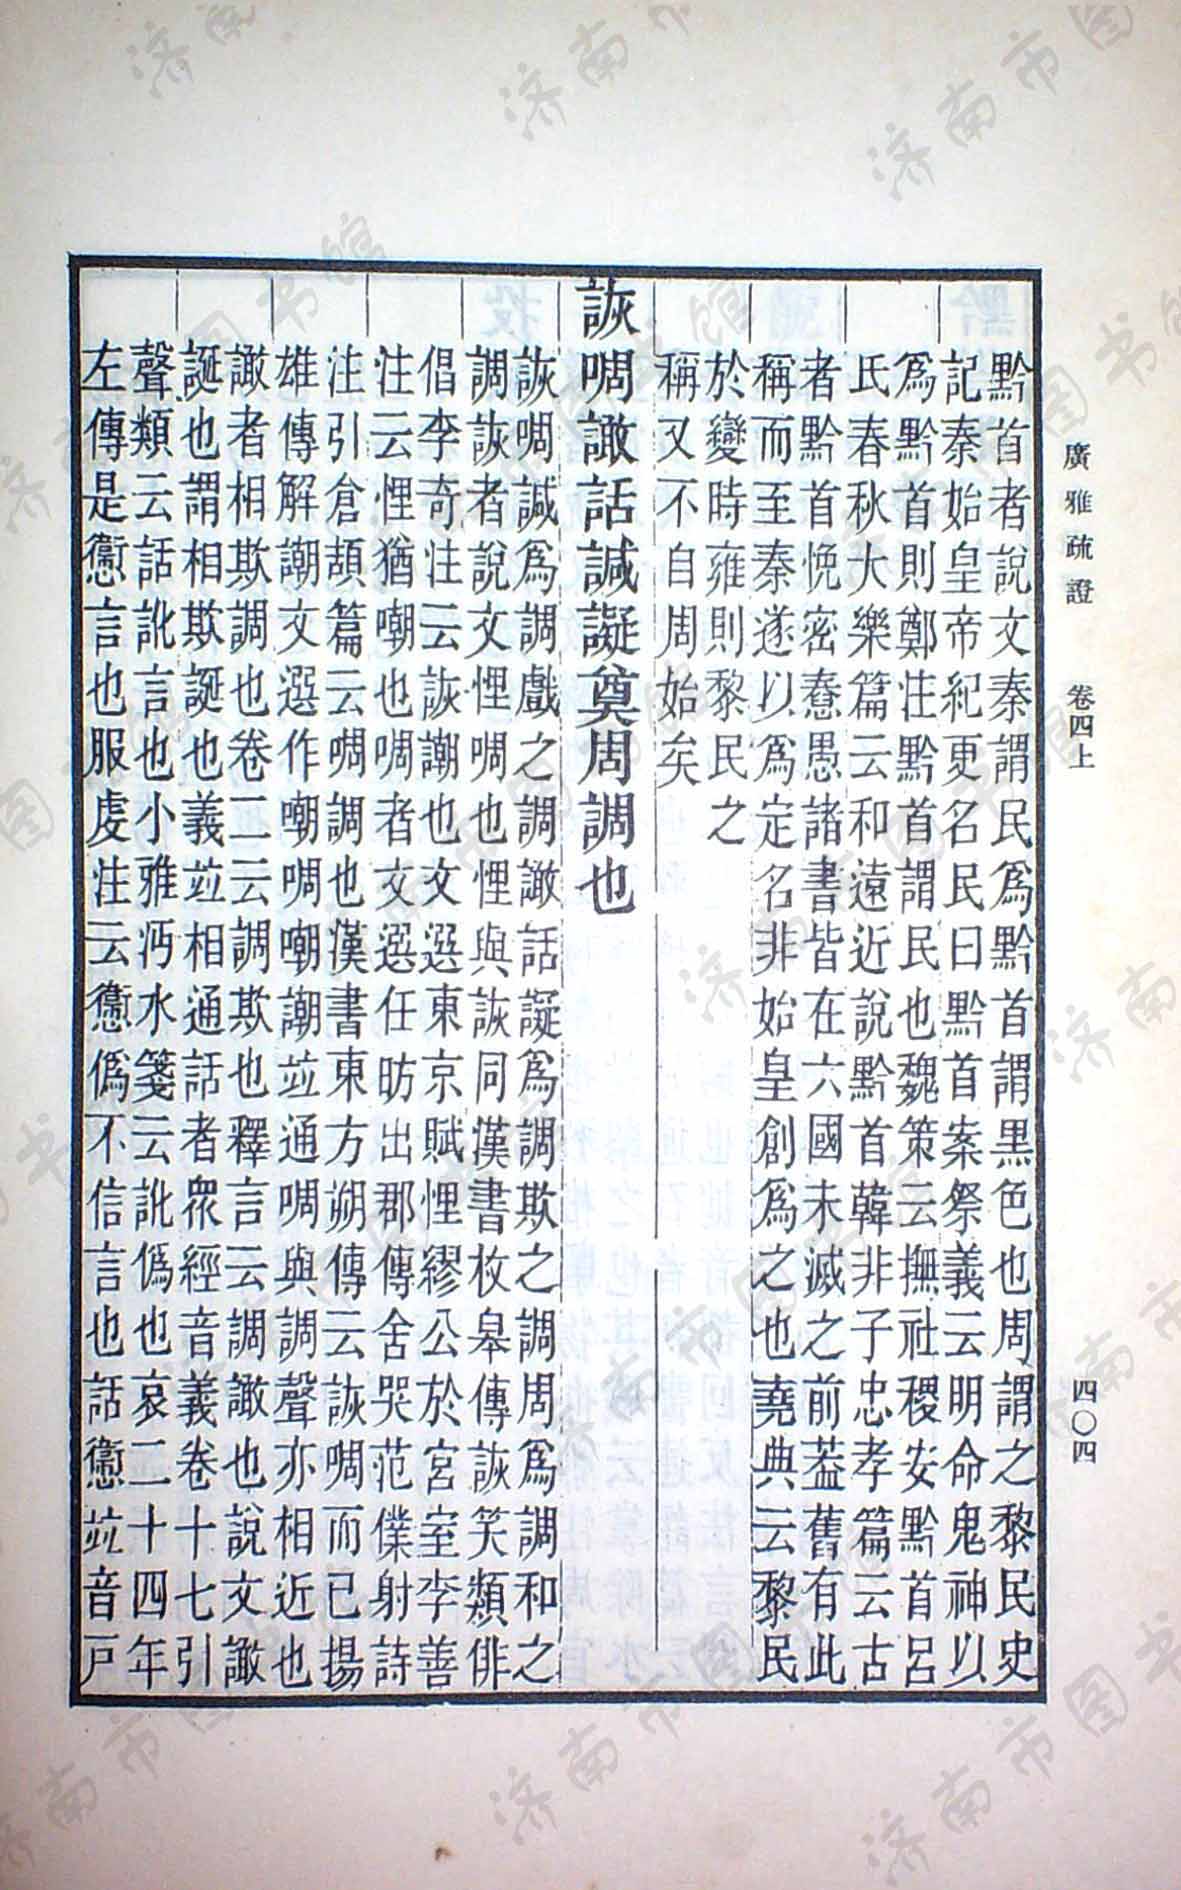 廣雅疏證　卷四上　四〇四
黔首者說文秦謂民爲黔首謂黑色也周謂之黎民史
記秦始皇帝紀更名民曰黔首案祭義云明命鬼神以
爲黔首則鄭注黔首謂民也魏策云撫社稷安黔首呂
氏春秋大樂篇云和遠近說黔首韓非子忠孝篇云古
者黔首悗密惷愚諸書皆在六國未滅之前葢舊有此
稱而至秦遂以爲定名非始皇創爲之也堯典云黎民
於變時雍則黎民之
稱又不自周始矣
詼啁譀話諴譺奠周調也
詼啁諴爲調戲之調譀話譺爲調欺之調周爲調和之
調詼者說文悝啁也悝與詼同漢書枚皋傳詼笑類俳
倡李奇注云詼潮也文選東京賦悝繆公於宮室李善
注云悝猶嘲也啁者文選任昉出郡傳舍哭范僕射詩
注引倉頡篇云啁調也漢書東方朔傳云詼啁而已揚
雄傳解潮文選作嘲啁嘲潮竝通啁與調聲亦相近也
譀者相欺調也卷二云調欺也釋言云調譀也說文譀
誕也謂相欺誕也義竝相通話者眾經音義卷十七引
聲類云話訛言也小雅沔水箋云訛僞也哀二十四年
左傳是躗言也服虔注云躗僞不信言也話躗竝音戸